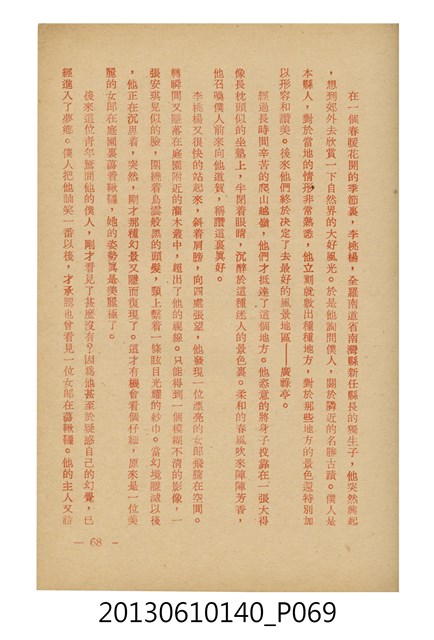 在一個春暖花開的季節裏，李桃楊，全羅南道省南灣縣新任縣長的獨生子，他突然興起
，想到郊外去欣賞一下自然界的大好風光。於是他詢問僕人，關於隣近的名勝古蹟。僕人是
本縣人，對於當地的情形非常熟悉，他立刻就數出種種地方，對於那些地方的景色還特別加
以形容和讚美。後來他們終於決定了去最好的風景地區——廣寒亭。
經過長時間辛苦的爬山越嶺，他們才抵達了這個地方。他恣意的將身子投靠在一張大得
像長枕頭似的坐墊上，半閉着眼睛，沉醉於這種迷人的景色裏。柔和的春風吹來陣陣芳香，
他召喚僕人前來向他道賀，稱讚這裏眞好。
李桃楊又很快的站起來，斜着肩膀，向四處張望，他發現一位漂亮的女郎飛騰在空間。
轉瞬間又隱落在庭園附近的灌木叢中，超出了他的視線。只能得到一個模糊不清的影像，一
張安琪兒似的臉，圍繞着烏雲般黑的頭髮，頸上繫着一條眩目光耀的紗巾。當幻境隱滅以後
，他正在沉思着，突然，剛才那種幻景又隱而復現了。這才有機會看個仔細，原來是一位美
麗的女郎在庭園裏盪着鞦韆，她的姿勢眞是美麗極了。
後來這位青年驚問他的僕人，剛才看見了甚麼沒有？因爲他甚至於疑惑自己的幻覺，已
經進入了夢鄉。僕人把他訕笑一番以後，才承認也曾看見一位女郎在盪鞦韆。他的主人又詰
— 68 —
20130610140_P069